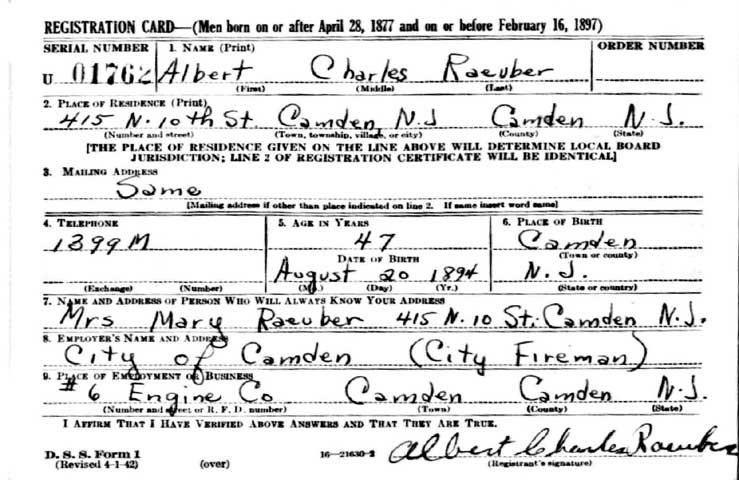 REGISTRATION CARD—(Men born on or after April 28, 1877 and on or before February 16, 1897)
SERIAL NUMBER 1. NAME (Print) ORDER NUMBER
U 01762 Albert Charles Raeuber
(First) (Middle) (Last)
2. PLACE OF RESIDENCE (Print)
415 N. 10th St. Camden N.J Camden N.J.
(Number and street) (Town, township, village, or city) (County) (State)
[THE PLACE OF RESIDENCE GIVEN ON THE LINE ABOVE WILL DETERMINE LOCAL BOARD
JURISDICTION; LINE 2 OF REGISTRATION CERTIFICATE WILL BE IDENTICAL]
3. MAILING ADDRESS
Same
[Mailing address if other than place indicated on line 2. If same insert word same]
4. TELEPHONE 5. AGE IN YEARS 6. PLACE OF BIRTH
1399M 47 Camden
(Town or county)
DATE OF BIRTH
August 20 1894 N.J.
(Exchange) (Number) (Mo.) (Day) (Yr.) (State or country)
7. NAME AND ADDRESS OF PERSON WHO WILL ALWAYS KNOW YOUR ADDRESS
Mrs Mary Raeuber 415 N. 10 St. Camden N.J.
8. EMPLOYER'S NAME AND ADDRESS
City of Camden (City Fireman)
9. PLACE OF EMPLOYMENT OR BUSINESS
#6 Engine Co Camden Camden N.J.
(Number and street or R. F. D. number) (Town) (County) (State)
I AFFIRM THAT I HAVE VERIFIED ABOVE ANSWERS AND THAT THEY ARE TRUE.
D. S. S. Form 1
(Revised 4-1-42) (over) 16—21630-2 Albert Charles Raeuber
(Registrant's signature)